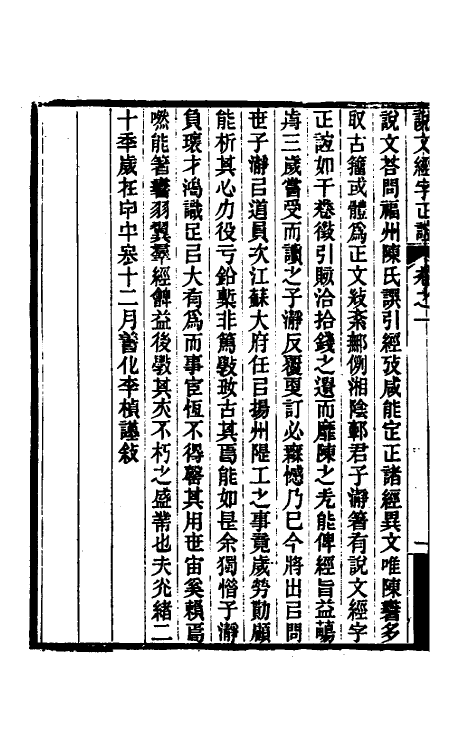 說文經字正誼 卷之一 一
說文荅問福州陳氏譔引經攷咸能定正諸經異文唯陳書多
取古籀或體爲正文紊鄦例湘陰郭君子瀞箸有說文經字
正誼如干卷徵引賅洽拾錢之遺而靡陳之尤能俾經旨益鬯
歬三歲嘗受而讀之子瀞反覆更訂必無憾乃已今將出㠯問
世子瀞㠯道員次江蘇大府任㠯揚州隄工之事竟歲勞勩顧
能析其心力役亏鉛槧非篤斆攷古其焉能如是余獨惜子瀞
負瓌才鴻識足㠯大有爲而事宦恆不得罄其用世宙奚賴焉
嘫能箸書羽翼羣經饒益後斆其亦不朽之盛業也夫光緒二
十季歲在甲午冬十二月善化李楨謹敘